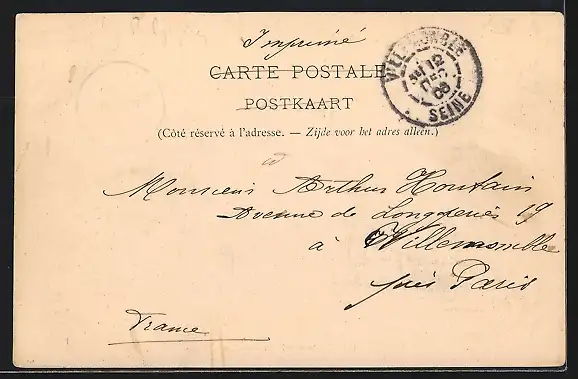 Imprimé
CARTE POSTALE
POSTKAART
(Côté réservé à l'adresse. — Zijde voor het adres alleen.)
VILLEMOMBLE
12
DEC
SEINE
Monsieur Arthur Houtain
Avenue de 19
à Villemomble
près Paris
France